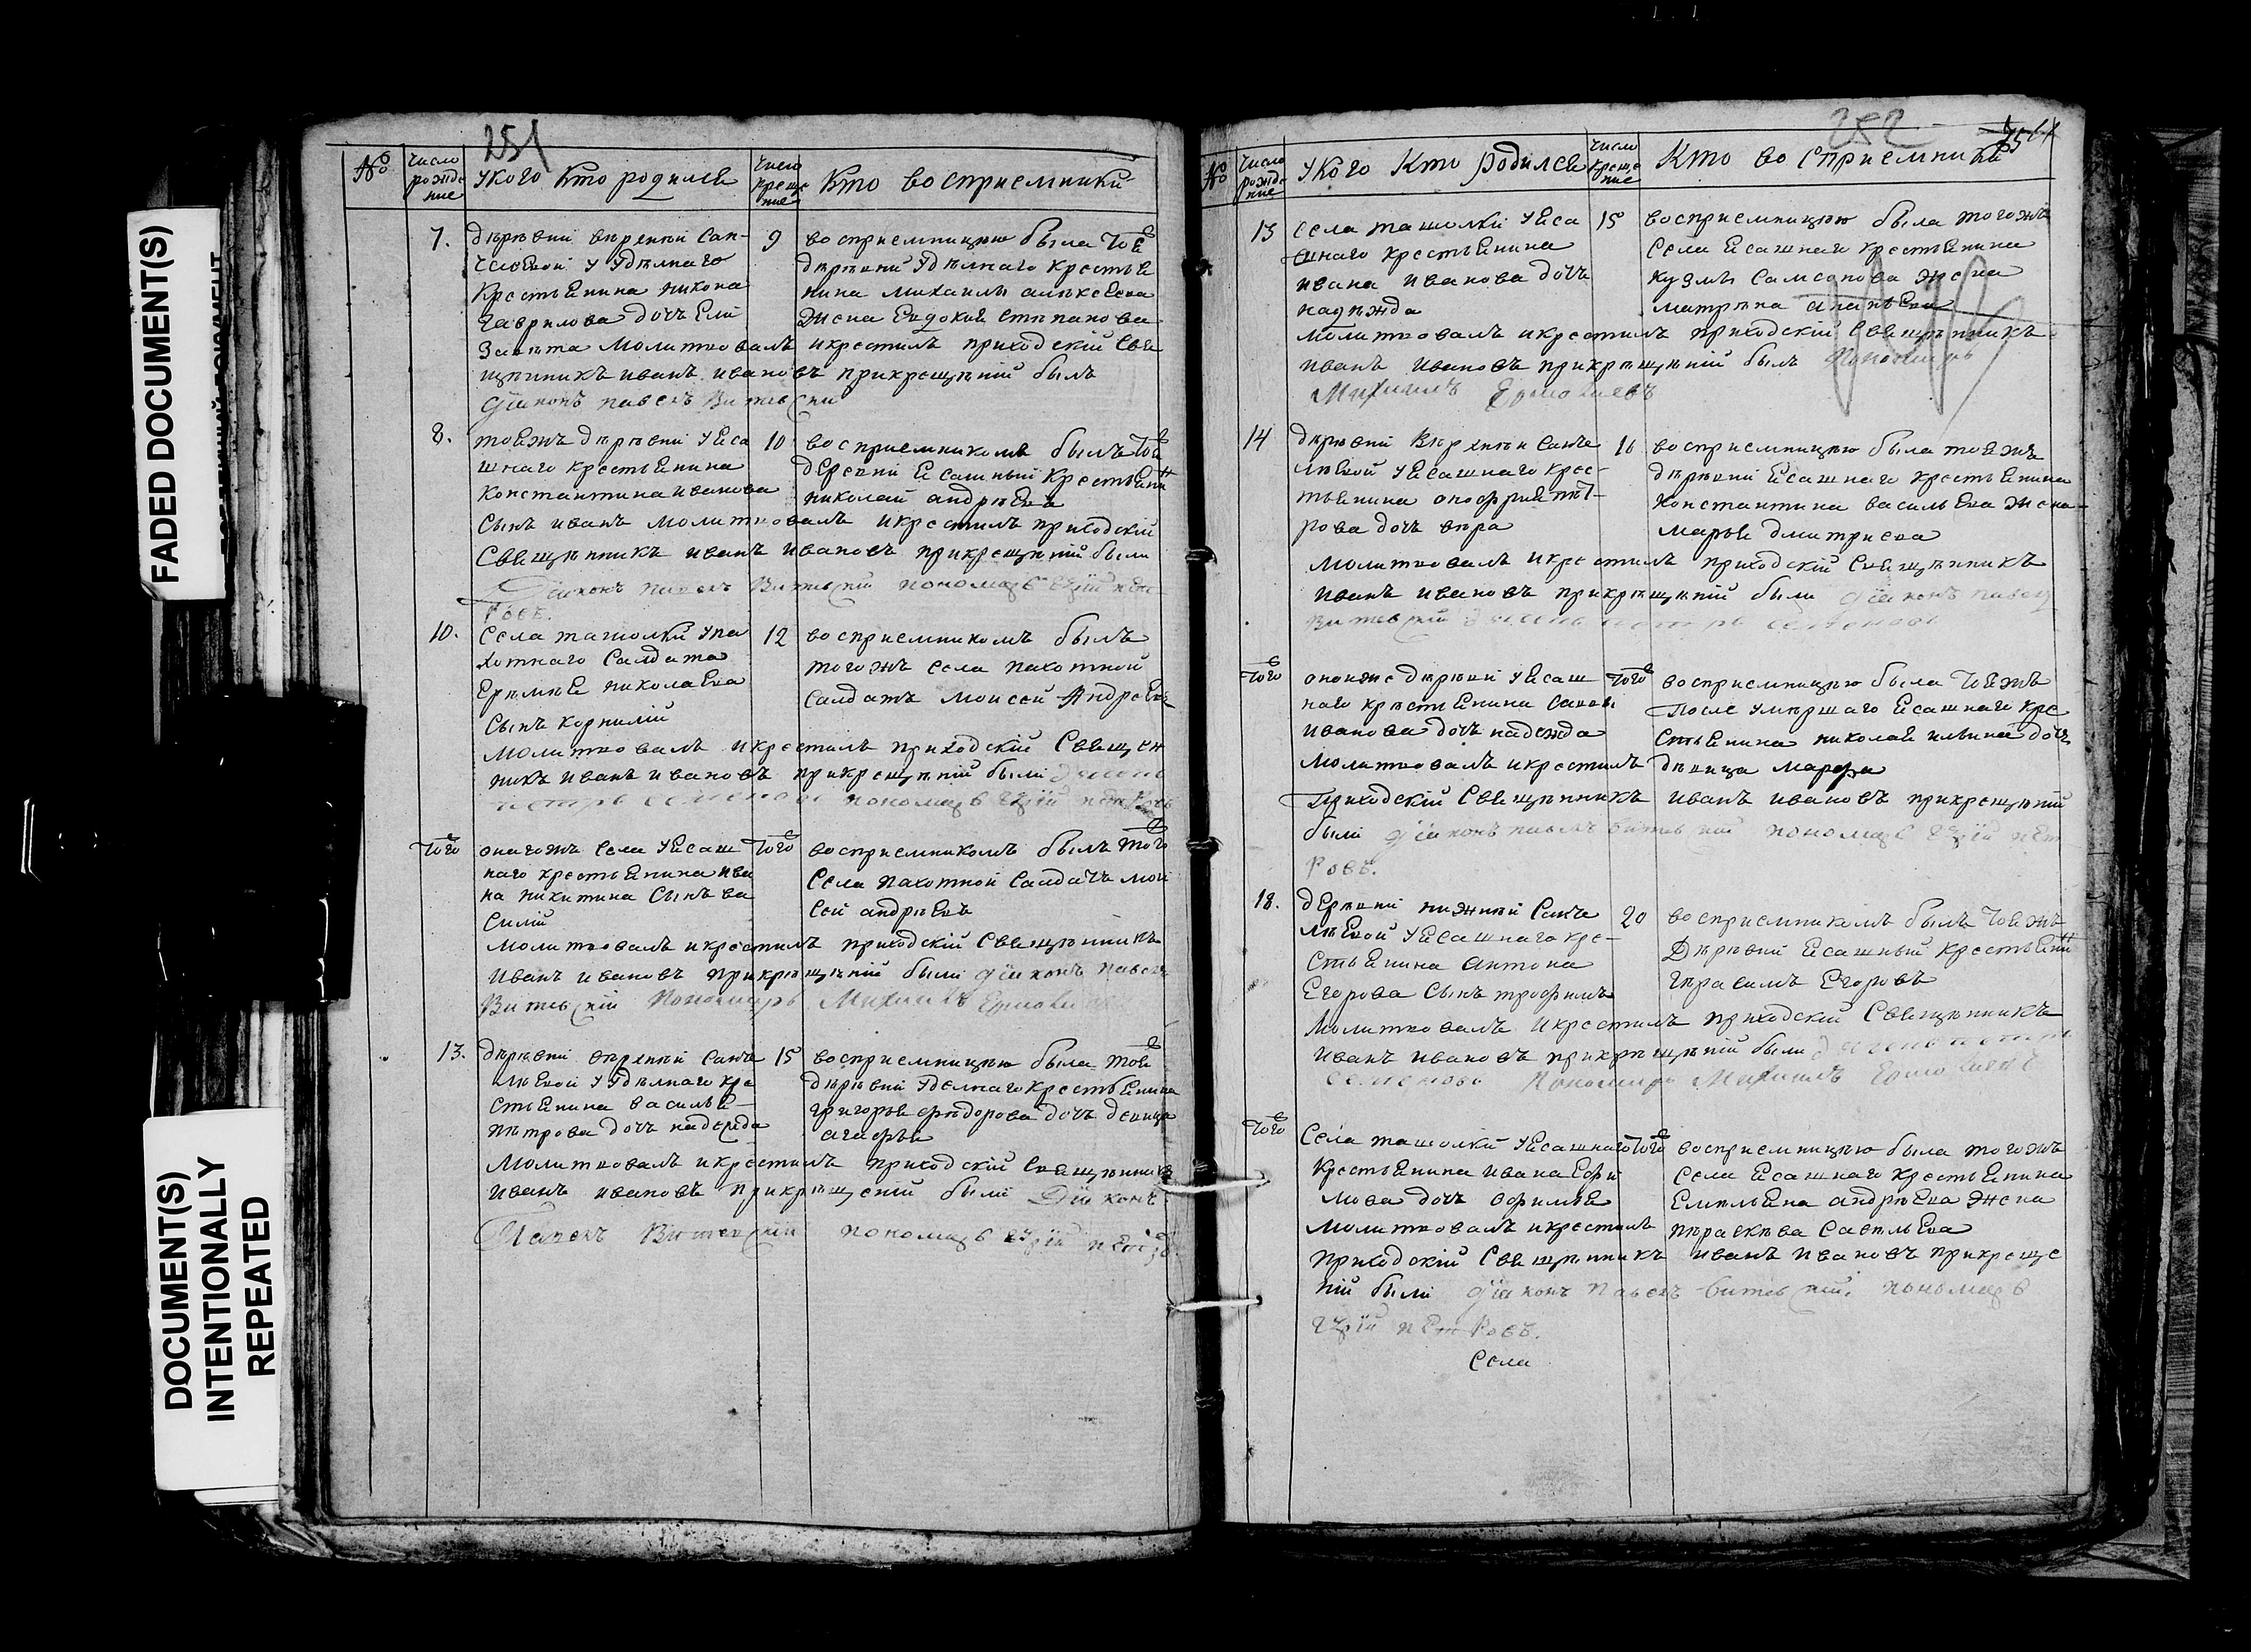 FADED DOCUMENT(S)
DOCUMENT(S)
INTENTIONALLY
REPEATED
251
№
число рожде ние
у кого кто родился
число креще ние
кто восприемники
7.
дѣрѣвнӣ вѣрхнѣй Сан-
челѣевой у удѣлнаго
крестьянина никона
гаврилова дочь Ели
завѣта молитвовалъ и крестилъ приходскій Свя
щѣнникъ иванъ ивановъ при крещѣніи былъ
діаконъ павелъ Витевскій
9
восприемницѣю была той
дѣрѣвни удѣлнаго крестья
нина михаилы алѣксеева
жена Евдокия стѣпанова
8.
тояжъ дѣрѣвни у яса
шнаго крестьянина
константина иванова
Сынъ иванъ молитвовалъ и крестилъ приходскій
Свящѣнникъ иванъ ивановъ при крещѣніи были
Діаконъ павелъ Витевскій пономарь
10
восприемникомъ былъ той
дѣревни ясашный крестьянинъ
николай андрѣевъ
10.
Села ташолки у па
хотнаго Салдата
Ерѣмѣя николаева
Сынъ корнилій
молитвовалъ и крестилъ приходскій Священ
никъ иванъ ивановъ при крещѣніи были
пономарь
12
восприемникомъ былъ
тогожъ села пахотной
Салдатъ моисей Андреевъ
того
онагожъ села у ясаш
наго крестьянина ива
на никитина Сынъ ва
силій
молитвовалъ и крестилъ приходскій Свящѣнникъ
иванъ ивановъ при крѣщѣніи были діаконъ павелъ
Витевскій Пономарь Михаилъ Ермолаевъ
того
восприемникомъ былъ того
Села пахотной Салдатъ мои
сей андрѣевъ
13.
дѣрѣвни вѣрхнѣй Санче
лѣевой у удѣлнаго кре
стьянина василья
пѣтрова дочь надежда
молитвовалъ и крестилъ приходскій свящѣнникъ
иванъ ивановъ при крѣщеніи были Діаконъ
Павелъ Витевскій пономарь
15
восприемницѣю была той
дѣрѣвни уделнаго крестьянина
григорья фѣдорова дочь девица
агафья
252
№
число рожде ние
у кого кто родился
число креще ние
кто восприемники
13
села ташолки у яса
шнаго крестьянина
ивана иванова дочь
надѣжда
молитвовалъ и крестилъ приходскій Свящѣнникъ
иванъ ивановъ при крѣщѣніи былъ Пономарь
Михаилъ Ермолаевъ
15
восприемницѣю была тогожъ
Села ясашнаго крестьянина
кузмы Самсонова жена
матрѣна ананьева
14
дѣрѣвни Вѣрхнѣи Санче
лѣевой у ясашнаго крес-
тьянина онофрия пѣт-
рова дочь вѣра
молитвовалъ и крестилъ приходскій Свящѣнникъ
иванъ ивановъ при крѣщѣніи были діаконъ павелъ
Витевскій
16
восприемницѣю была тояжъ
дѣрѣвни ясашнаго крестьянина
константина васильева жена
марья дмитриева
того
оноиже дѣрѣвни у ясаш
наго крѣстьянина савы
иванова дочь надежда
молитвовалъ и крестилъ
приходскій Свящѣнникъ иванъ ивановъ при крещѣніи
были діаконъ павелъ витевскій пономарь
того
восприемницѣю была тояжъ
после умѣршаго ясашнаго кре
стьянина николая ильина дочь
дѣвица марфа
18.
дѣрѣвни нижнѣй Санче
лѣевой у ясашнаго кре-
стьянина антона
Егорова Сынъ трофимъ
молитвовалъ и крестилъ приходскій Свящѣнникъ
иванъ ивановъ при крѣщѣніи были
Пономарь Михаилъ Ермолаевъ
20
восприемникомъ былъ тояжъ
дѣрѣвни ясашный крестьянинъ
гѣрасимъ Егоровъ
того
Села ташолки у ясашнаго
крестьянина ивана Ефи
мова дочь Офимья
молитвовалъ и крестилъ
приходскій Свящѣнникъ иванъ ивановъ при креще
ніи были діаконъ павелъ витевскій, пономарь
того
восприемницѣю была тогожъ
села ясашнаго крестьянина
Емѣльяна андрѣева жена
пѣраскѣва Савѣльева
Села